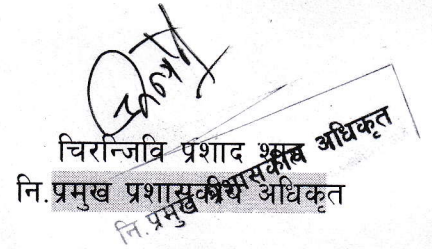 चिरन्जिवि प्रशाद
नि.प्रमुख प्रशासकीय अधिकृत
नि.प्रमुख प्रशासकीय अधिकृत